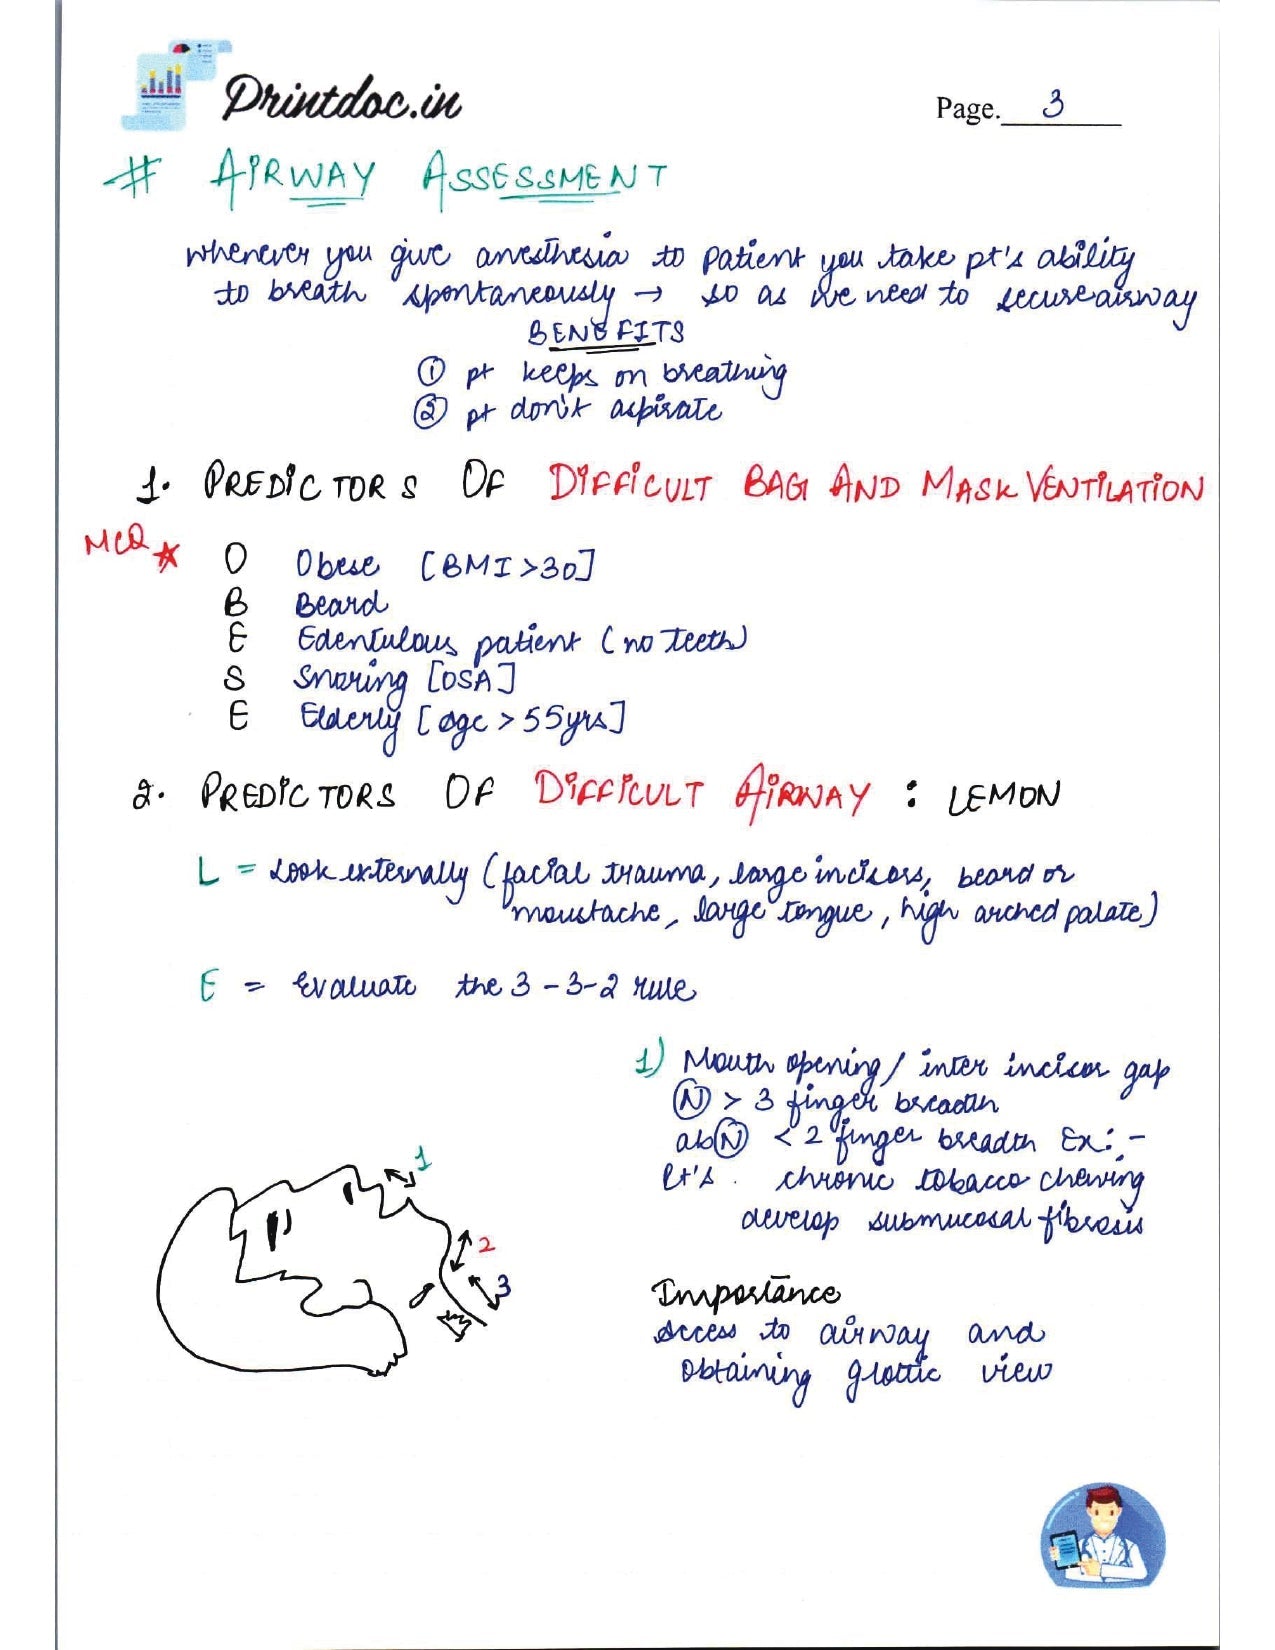 Printdoc.in
Page. 3
# AIRWAY ASSESSMENT
whenever you give anesthesia to patient you take pt's ability
to breath spontaneously → so as we need to secure airway
BENEFITS
① pt keeps on breathing
② pt don't aspirate
1. PREDICTORS OF DIFFICULT BAG AND MASK VENTILATION
MCQ ★
O Obese [BMI>30]
B Beard
E Edentulous patient (no teeth)
S Snoring [OSA]
E Elderly [age > 55yrs]
2. PREDICTORS OF DIFFICULT AIRWAY : LEMON
L = Look externally (facial trauma, large incisors, beard or
moustache, large tongue, high arched palate)
E = Evaluate the 3-3-2 rule
1) Mouth opening / inter incisor gap
Ⓝ > 3 finger breadth
abⓃ < 2 finger breadth Ex:-
Pt's. chronic tobacco chewing
develop submucosal fibrosis
1
2
3
Importance
Access to airway and
obtaining glottic view